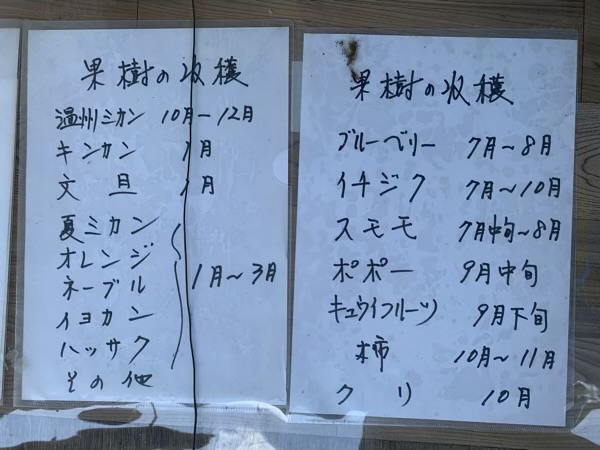 果樹の収穫
温州ミカン 10月ー12月
キンカン 1月
文旦 1月
夏ミカン
オレンジ
ネーブル 1月～3月
イヨカン
ハッサク
その他
果樹の収穫
ブルーベリー 7月～8月
イチジク 7月～10月
スモモ 7月中旬～8月
ポポー 9月中旬
キュウイフルーツ 9月下旬
柿 10月～11月
クリ 10月